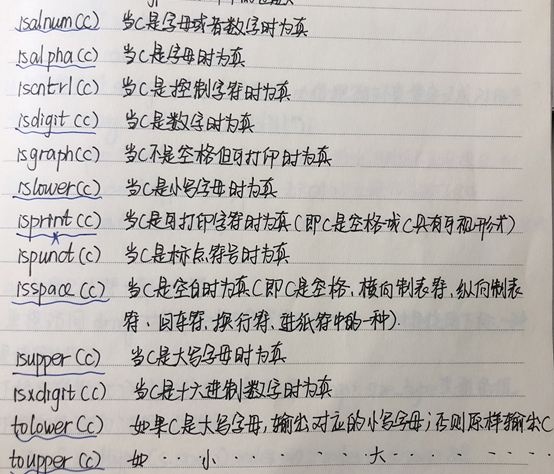 isalnum(c) 当C是字母或者数字时为真
isalpha(c) 当C是字母时为真
iscntrl(c) 当C是控制字符时为真
isdigit(c) 当C是数字时为真
isgraph(c) 当C不是空格但可打印时为真
islower(c) 当C是小写字母时为真
isprint(c) 当C是可打印字符时为真(即C是空格或C具有可视形式)
ispunct(c) 当C是标点符号时为真
isspace(c) 当C是空白时为真(即C是空格、横向制表符、纵向制表
符、回车符、换行符、进纸符中的一种).
isupper(c) 当C是大写字母时为真
isxdigit(c) 当C是十六进制数字时为真
tolower(c) 如果C是大写字母,输出对应的小写字母;否则原样输出C
toupper(c) 如 · · 小 · · · · · · 大 · · · · · ·